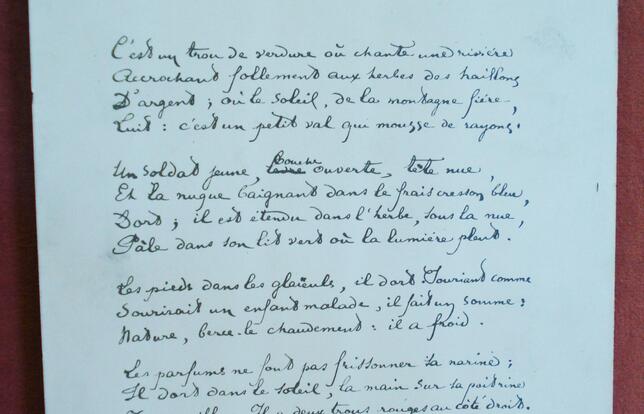 C'est un trou de verdure où chante une rivière
Accrochant follement aux herbes des haillons
D'argent ; où le soleil, de la montagne fière,
Luit : c'est un petit val qui mousse de rayons.
Un soldat jeune, bouche ouverte, tête nue,
Et la nuque baignant dans le frais cresson bleu,
Dort ; il est étendu dans l'herbe, sous la nue,
Pâle dans son lit vert où la lumière pleut.
Les pieds dans les glaïeuls, il dort. Souriant comme
Sourirait un enfant malade, il fait un somme :
Nature, berce-le chaudement : il a froid.
Les parfums ne font pas frissonner sa narine ;
Il dort dans le soleil, la main sur sa poitrine
Tranquille. Il a deux trous rouges au côté droit.